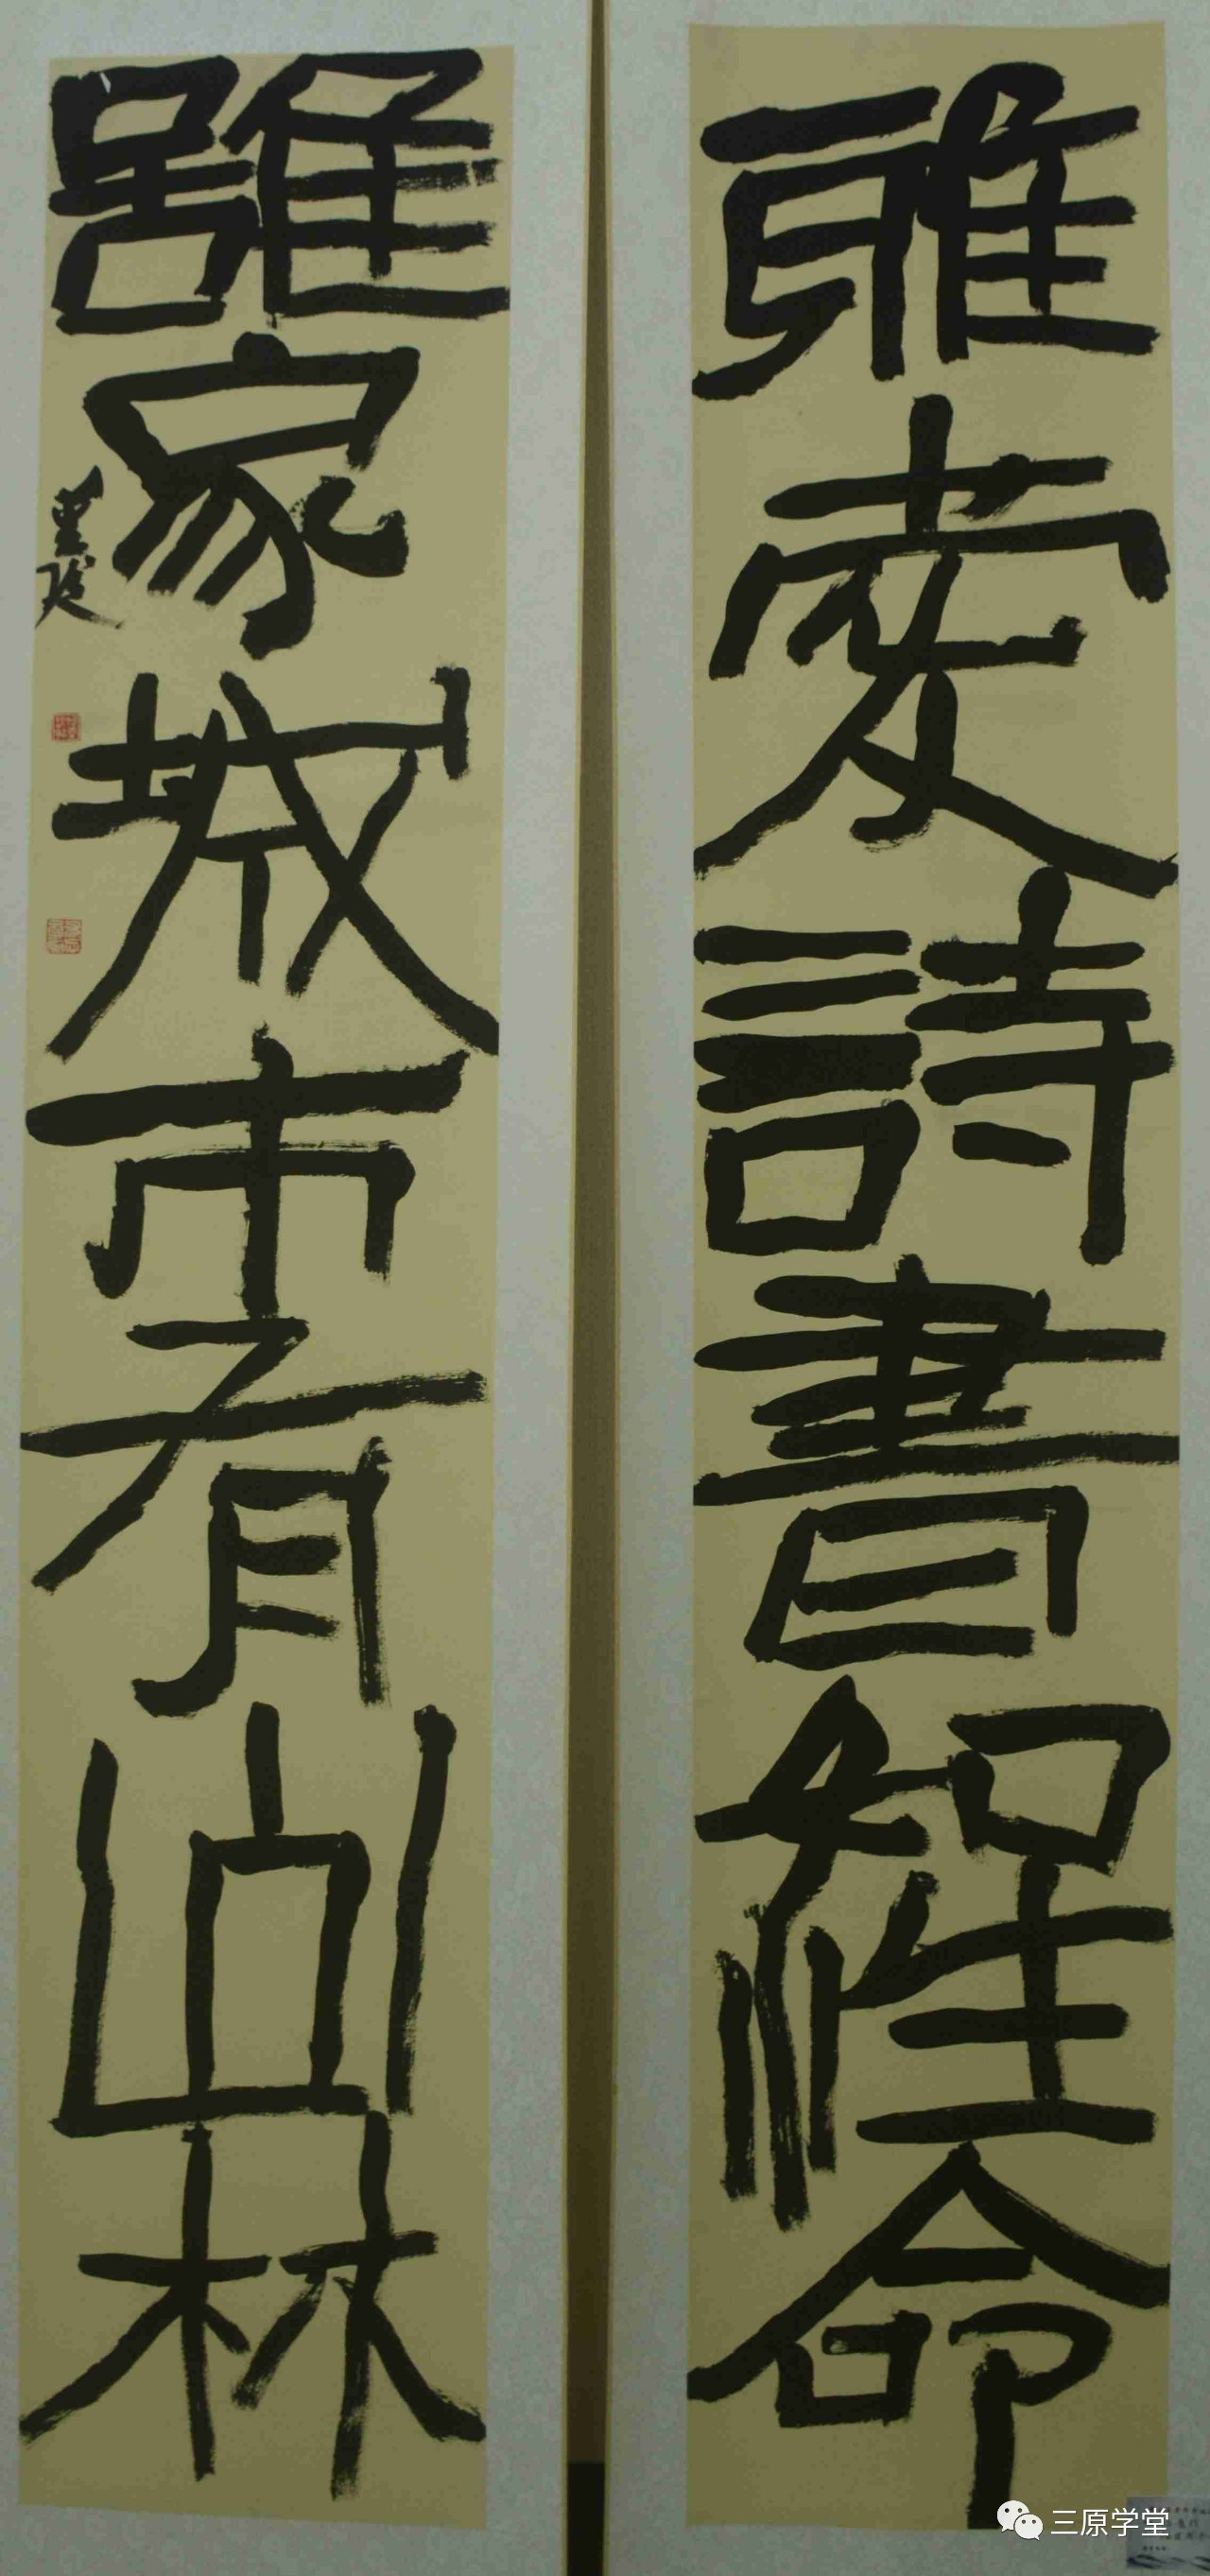 雅愛詩書經性命
雖家城市有山林
三原学堂